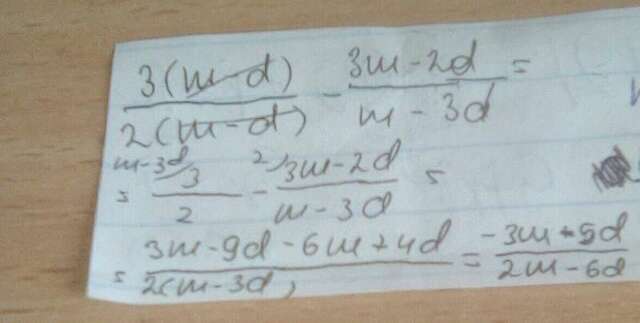 3(m-d)/2(m-d) - 3m-2d/m-3d =
= m-3d/ 3/2 - 2/ 3m-2d/m-3d =
= 3m-9d-6m+4d/2(m-3d) = -3m+5d/2m-6d